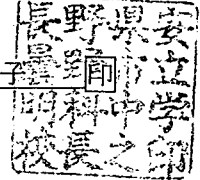 長野県安
曇野市立
子 印
明科中学
校長之印